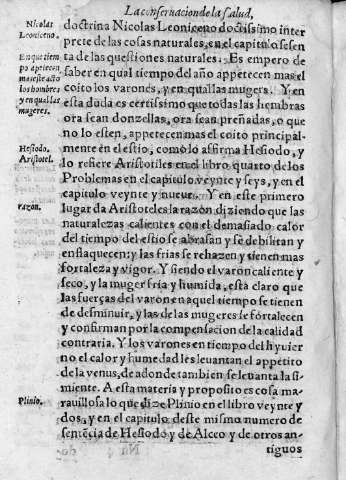 La conseruacion de la salud,
Nicolas Leoniceno.
doctrina Nicolas Leoniceno doctissimo inter
prete de las cosas naturales, en el capitulo sesen
En que tiempo apetecen mas este acto los hombres y en qual las mugeres.
ta de las questiones naturales. Es empero de
saber en qual tiempo del año appetecen mas el
coito los varones, y en qual las mugers. Y en
esta duda es certissimo que todas las hembras
ora sean donzellas, ora sean preñadas, o que
no lo esten, appetecen mas el coito principal-
Hesiodo.
Aristotel.
mente en el estio, como lo affirma Hesiodo, y
lo refiere Aristotiles en el libro quarto de los
Problemas en el capitulo veynte y seys, y en el
capitulo veynte y nueue. Y en este primero
razon.
lugar da Aristoteles la razon diziendo que las
naturalezas calientes con el demasiado calor
del tiempo del estio se abrasan y se debilitan y
enflaquecen; y las frias se rehazen y tienen mas
fortaleza y vigor. Y siendo el varon caliente y
seco, y la muger fria y humida, està claro que
las fuerças del varon en aquel tiempo se tienen
de desminuir, y las de las mugeres se fortalecen
y confirman por la compensacion de la calidad
contraria. Y los varones en tiempo del hyuier
no el calor y humedad les leuantan el appetito
de la venus, de adonde tambien se leuanta la si-
miente. A esta materia y proposito es cosa ma-
Plinio.
rauillosa lo que dize Plinio en el libro veynte y
dos, y en el capitulo deste mismo numero de
sentẽcia de Hesiodo y de Alceo y de otros an-
tiguos